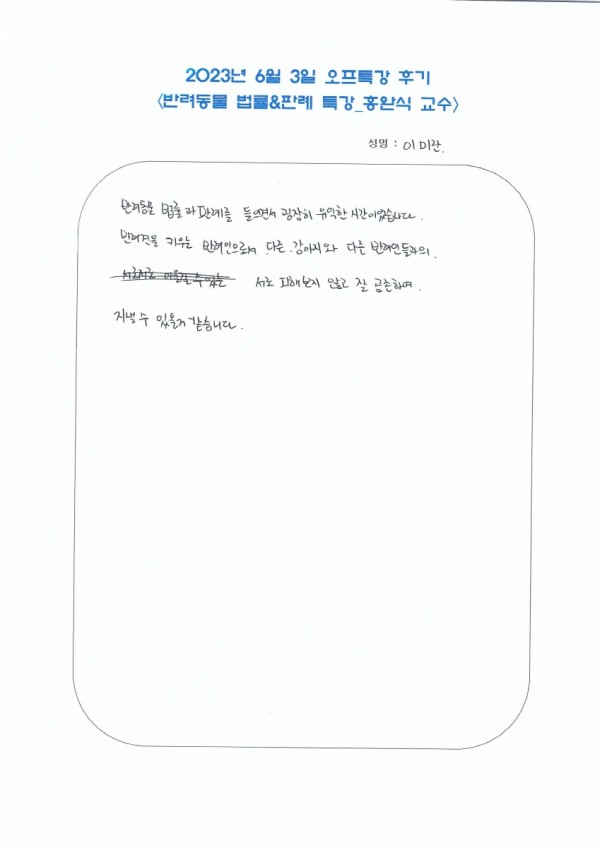 2023년 6월 3일 오프특강 후기
<반려동물 법률&판례 특강_홍완식 교수>
성명 : 이미란.
반려동물 법률과 판례를 들으면서 굉장히 유익한 시간이었습니다.
반려견을 키우는 반려인으로서 다른 강아지와 다른 반려인들과의.
서로 피해보지 않고 잘 공존하며.
지낼 수 있을거 같습니다.